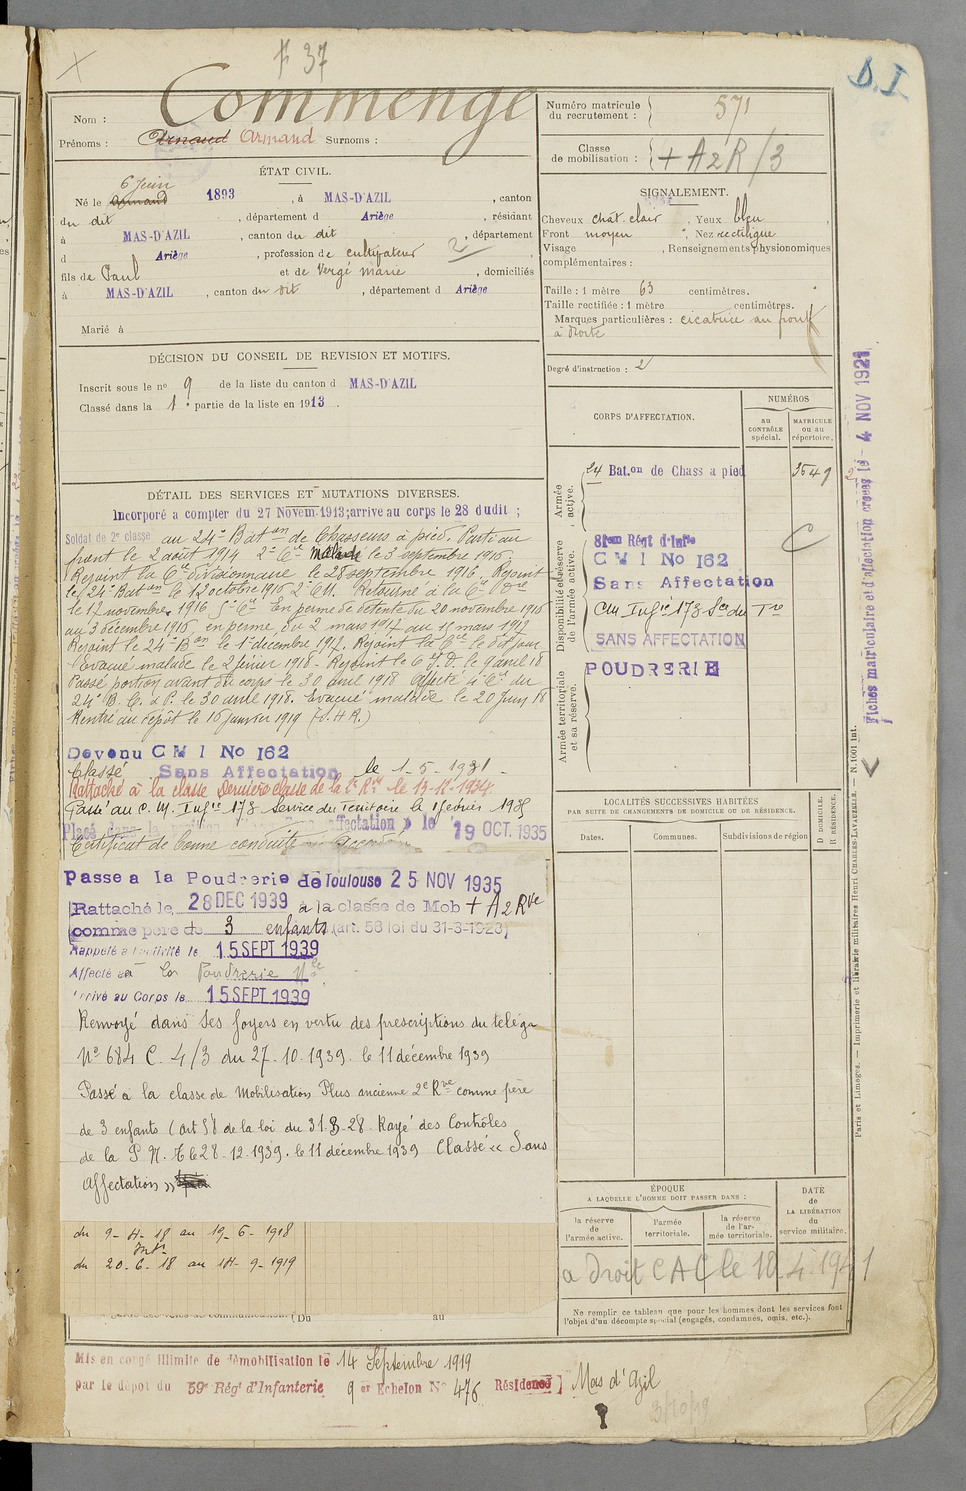 F 37
D.I.
Nom : Commenge
Prénoms : Arnaud Armand Surnoms :
ÉTAT CIVIL.
6 Juin
Né le 1893, à MAS-D'AZIL, canton
du dit, département d Ariège, résidant
à MAS-D'AZIL, canton du dit, département
d Ariège, profession de cultivateur
fils de Paul et de Vergé marie, domiciliés
à MAS-D'AZIL, canton du dit, département d Ariège
Marié à
DÉCISION DU CONSEIL DE REVISION ET MOTIFS.
Inscrit sous le no 9 de la liste du canton d MAS-D'AZIL
Classé dans la 1e partie de la liste en 1913.
Numéro matricule du recrutement : 571
Classe de mobilisation : + A 2 R /3
SIGNALEMENT.
Cheveux chat clair, Yeux bleu
Front moyen, Nez rectiligne
Visage , Renseignements physionomiques
complémentaires :
Taille : 1 mètre 63 centimètres.
Taille rectifiée : 1 mètre centimètres.
Marques particulières : cicatrice au front
à droite
Degré d'instruction : 2
DÉTAIL DES SERVICES ET MUTATIONS DIVERSES.
Incorporé a compter du 27 Novem. 1913; arrive au corps le 28 dudit ;
Soldat de 2e classe au 24e Baton de Chasseurs à pied. Parti au
front le 2 août 1914 2e Cie Malade le 3 septembre 1916.
Rejoint la Cie divisionnaire le 28 septembre 1916. Rejoint
le 24e Baton le 12 octobre 1916 2e CM. Retourné à la Cie Dre
le 17 novembre 1916 5e Cie En perme de détente du 20 novembre 1916
au 3 décembre 1916, en perme du 2 mars 1917 au 15 mars 1917
Rejoint le 24e Bon le 1er décembre 1917. Rejoint la Cie le dit jour
Evacué malade le 2 février 1918 - Rejoint le C.I.D. le 9 avril 18
Passé portion avant du corps le 30 avril 1918 affecté 4e Cie du
24e B.C. à P. le 30 avril 1918. Evacué malade le 20 Juin 18
Rentré au dépôt le 16 janvier 1919
Devenu C M I No 162
Classé Sans Affectation le 1-5-1931
Rattaché à la classe Dernière classe de la 1e Rve le 13-12-1934
Passé au C. M. Infie 173 Service du Territoire le 1 février 1935
Placé dans la affectation » le 19 OCT. 1935
Certificat de bonne conduite accordé
Passe a la Poudrerie de Toulouse 25 NOV 1935
Rattaché le 28 DEC 1939 à la classe de Mob + A 2 Rve
comme père de 3 enfants (art. 58 loi du 31-3-1928)
Rappelé à l'activité le 15 SEPT 1939
Affecté à la Poudrerie Nle
Arrivé au Corps le 15 SEPT 1939
Renvoyé dans ses foyers en vertu des prescriptions du télégr
No 684 C. 4/3 du 27.10.1939. le 11 décembre 1939
Passé à la classe de Mobilisation Plus ancienne 2e Rve comme père
de 3 enfants (Art 58 de la loi du 31.3-28. Rayé des Contrôles
de la P. N. T le 28.12.1939. le 11 décembre 1939 Classé « Sans
affectation »
du 9-4-18 au 19-6-1918
Int.
du 20-6-18 au 14-9-1919
(Du au
CORPS D'AFFECTATION.
NUMÉROS
au CONTRÔLE spécial.
MATRICULE ou au répertoire.
Armée active.
24 Bat.on de Chass a pied 3549
Disponibilité et réserve de l'armée active.
81em Régt d'Infie
C M I No 162
Sans Affectation
CM Infie 173 Sce du Tre
SANS AFFECTATION
Armée territoriale et sa réserve.
POUDRERIE
C
Fiches matriculaire et d'affectation créées le 4 NOV 1921
LOCALITÉS SUCCESSIVES HABITÉES
PAR SUITE DE CHANGEMENTS DE DOMICILE OU DE RÉSIDENCE.
Dates.
Communes.
Subdivisions de région
D DOMICILE.
R RÉSIDENCE.
ÉPOQUE
A LAQUELLE L'HOMME DOIT PASSER DANS :
la réserve de l'armée active.
l'armée territoriale.
la réserve de l'armée territoriale.
DATE de LA LIBÉRATION du service militaire.
a droit C A C le 18.4.1941
Ne remplir ce tableau que pour les hommes dont les services font
l'objet d'un décompte spécial (engagés, condamnés, omis, etc.).
Paris et Limoges. — Imprimerie et librairie militaires Henri CHARLES-LAVAUZELLE. — N. 1001 int.
Mis en congé illimité de démobilisation le 14 Septembre 1919
par le dépot du 59e Régt d'Infanterie 9 er Echelon No 476 Résidence Mas d'Azil
3/10/19